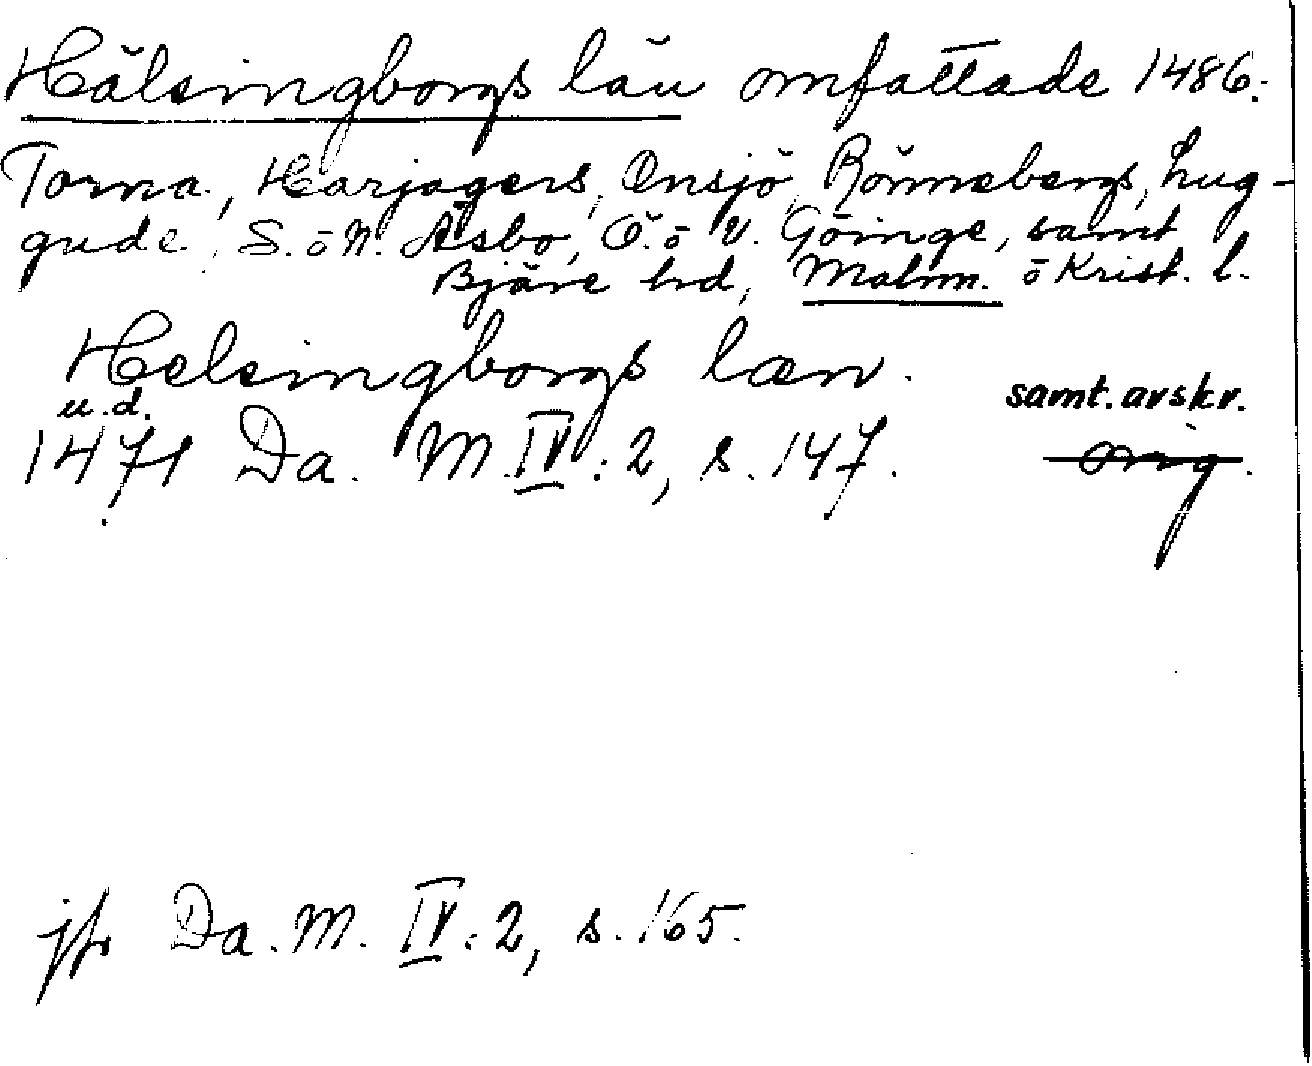 Hälsingborgs län omfattade 1486:
Torna, Harjagers, Onsjö, Rönnebergs, Lug-
gude, S. o N. Åsbo, Ö. o V. Göinge, samt
Bjäre hrd, Malm. o Krist. l.
Helsingborgs læn.
u.d.
samt. avskr.
1471 Da. M. IV: 2, s. 147.
orig.
jfr Da. M. IV: 2, s. 165.